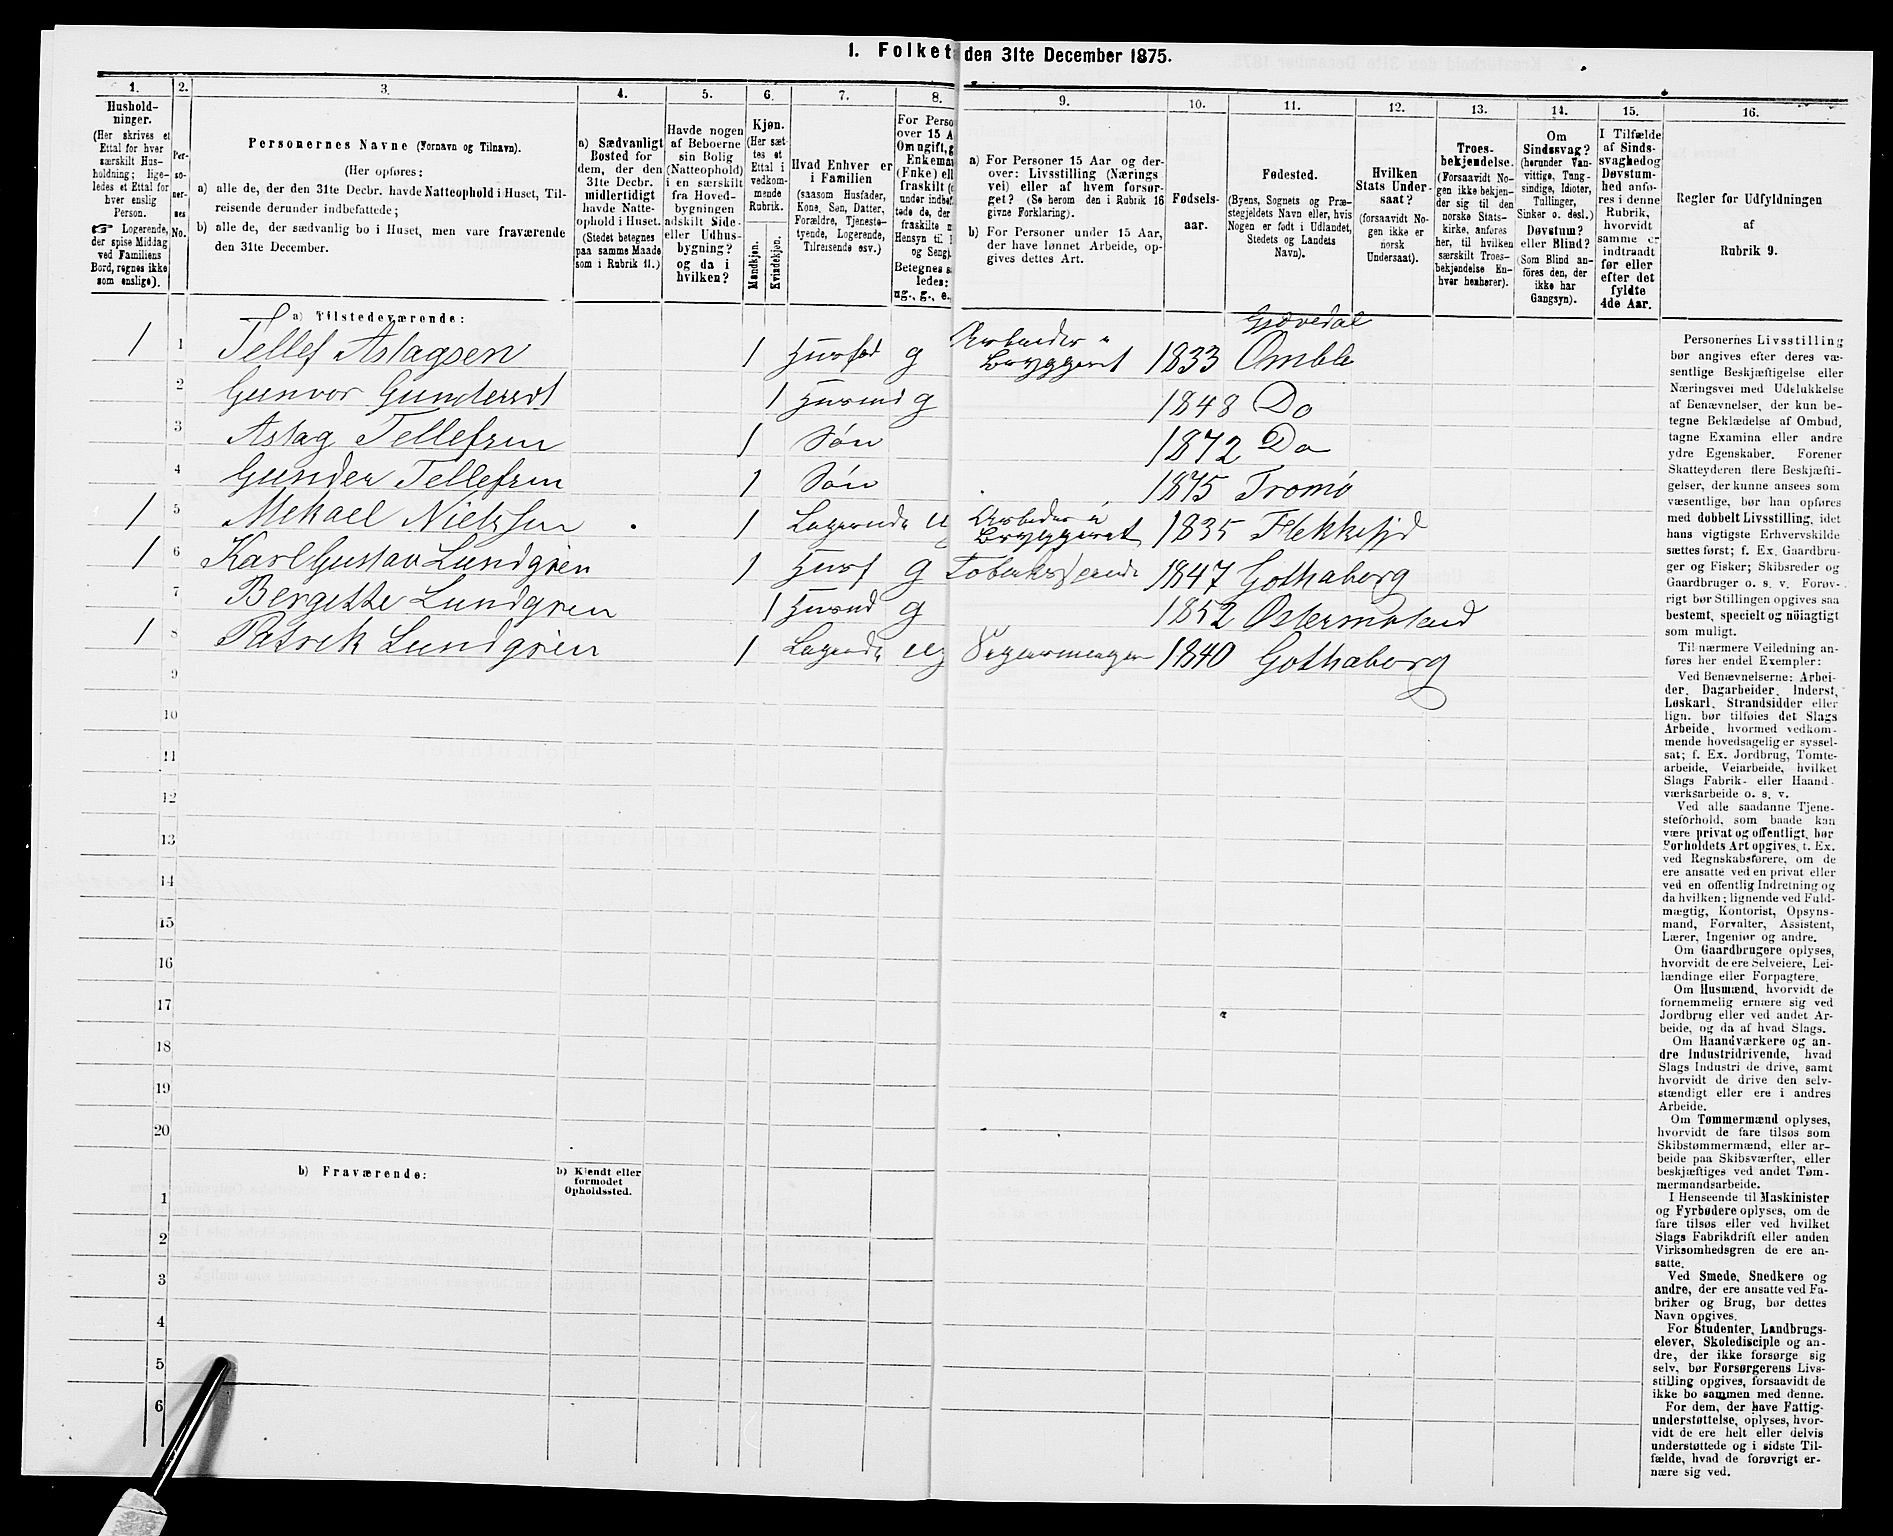 1. Folket den 31te December 1875.
1.
Hushold-
ninger.
(Her skrives et
Ettal for hver
særskilt Hus-
holdning; lige-
ledes et Ettal for
hver enslig
Person.
☞ Logerende,
der spise Middag
ved Familiens
Bord, regnes ikke
som enslige).
2.
Per-
so-
ner-
nes
No.
3.
Personernes Navne (Fornavn og Tilnavn).
(Her opføres:
a) alle de, der den 31te Decbr. havde Natteophold i Huset, Til-
reisende derunder indbefattede;
b) alle de, der sædvanlig bo i Huset, men vare fraværende
den 31te December.
4.
a) Sædvanligt
Bosted for
dem, der den
31te Decbr.
midlertidigt
havde Natte-
ophold i Huset.
(Stedet betegnes
paa samme Maade
som i Rubrik 11.)
5.
Havde nogen
af Beboerne
sin Bolig
(Natteophold)
i en særskilt
fra Hoved-
bygningen
adskilt Side-
eller Udhus-
bygning?
og da i
hvilken?
6.
Kjøn.
(Her sæt-
tes et
Ettal i
vedkom-
mende
Rubrik.
Mandkjøn.
Kvindekjøn.
7.
Hvad Enhver er
i Familien
(saasom Husfader,
Kone, Søn, Datter,
Forældre, Tjeneste-
tyende, Logerende,
Tilreisende osv.)
8.
For Perso
over 15 A
Om ugift, g
Enkema
(Enke) ell
fraskilt (
under indbef
tede de, der
fraskilte m
Hensyn til
og Seng).
Betegnes s
ledes:
ug., g., e.,
9.
a) For Personer 15 Aar og der-
over: Livsstilling (Nærings
vei) eller af hvem forsør-
get? (Se herom den i Rubrik 16
givne Forklaring).
b) For Personer under 15 Aar,
der have lønnet Arbeide, op-
gives dettes Art.
10.
Fødsels-
aar.
11.
Fødested.
(Byens, Sognets og Præ-
stegjeldets Navn eller, hvis
Nogen er født i Udlandet,
Stedets og Landets
Navn).
12.
Hvilken
Stats Under-
saat?
(forsaavidt No-
gen ikke er
norsk
Undersaat).
13.
Troes-
bekjendelse.
(Forsaavidt No-
gen ikke bekjen-
der sig til den
norske Stats-
kirke, anføres
her, til hvilken
særskilt Troes-
bekjendelse En-
hver henhører).
14.
Om
Sindssvag?
(herunder Van-
vittige, Tung-
sindige, Idioter,
Tullinger,
Sinker o. desl.)
Døvstum?
eller Blind?
(Som Blind an-
føres den, der
ikke har
Gangsyn).
15.
I Tilfælde
af Sinds-
svaghed og
Døvstum-
hed anfø-
res i denne
Rubrik,
hvorvidt
samme er
indtraadt
før eller
efter det
fyldte
4de Aar.
16.
Regler for Udfyldningen
af
Rubrik 9.
a) Tilstedeværende:
Gjøvedal
1 1 Tellef Aslagsen 1 Husfad g Arbeider i Bryggeret 1833 Omble
2 Gunvor Gundersdt 1 Husmd g 1848 Do
3 Aslag Tellefsen 1 Søn 1872 Do
4 Gunder Tellefsen 1 Søn 1875 Tromø
1 5 Mekael Nielsen 1 Logerende ug Arbeder i Bryggeret 1835 Flekkefjd
1 6 Karl Gustav Lundgren 1 Husf g 1847 Gothaborg
7 Bergette Lundgren 1 Husmd g 1852 Østermoland
1 8 Patrek Lundgren 1 Logende ug 1840 Gothaborg
9
10
11
12
13
14
15
16
17
18
19
20
b) Fraværende:
b) Kjendt eller
formodet
Opholdssted.
1
2
3
4
5
6
Personernes Livsstilling
bør angives efter deres væ-
sentlige Beskjæftigelse eller
Næringsvei med Udelukkelse
af Benævnelser, der kun be-
tegne Beklædelse af Ombud,
tagne Examina eller andre
ydre Egenskaber. Forener
Skatteyderen flere Beskjæfti-
gelser, der kunne ansees som
væsentlige, bør han opføres
med dobbelt Livsstilling, idet
hans vigtigste Erhvervskilde
sættes først; f. Ex. Gaardbru-
ger og Fisker; Skibsreder og
Gaardbruger o. s. v. Forøv-
rigt bør Stillingen opgives saa
bestemt, specielt og nöiagtigt
som muligt.
Til nærmere Veiledning an-
føres her endel Exempler:
Ved Benævnelserne: Arbei-
der, Dagarbeider, Inderst,
Løskarl, Strandsidder eller
lign. bør tilføies det Slags
Arbeide, hvormed vedkom-
mende hovedsagelig er syssel-
sat; f. Ex. Jordbrug, Tomte-
arbeide, Veiarbeide, hvilket
Slags Fabrik- eller Haand-
værksarbeide o. s. v.
Ved alle saadanne Tjene-
steforhold, som baade kan
være privat og offentligt, bør
Forholdets Art opgives, t. Ex.
ved Regnskabsførere, om de
ere ansatte ved en privat eller
ved en offentlig Indretning og
da hvilken; lignende ved Fuld-
mægtig, Kontorist, Opsyns-
mand, Forvalter, Assistent,
Lærer, Ingeniør og andre.
Om Gaardbrugere oplyses,
hvorvidt de ere Selveiere, Lei-
lændinge eller Forpagtere.
Om Husmænd, hvorvidt de
fornemmelig ernære sig ved
Jordbrug eller ved andet Ar-
beide, og da af hvad Slags.
Om Haandværkere og an-
dre Industridrivende, hvad
Slags Industri de drive, samt
hvorvidt de drive den selv-
stændigt eller ere i andres
Arbeide.
Om Tømmermænd oplyses,
hvorvidt de fare tilsøs som
Skibstømmermænd, eller ar-
beide paa Skibsværfter, eller
beskjæftiges ved andet Tøm-
mermandsarbeide.
I Henseende til Maskinister
og Fyrbødere oplyses, om de
fare tilsøs eller ved hvilket
Slags Fabrikdrift eller anden
Virksomhedsgren de ere an-
satte.
Ved Smede, Snedkere og
andre, der ere ansatte ved Fa-
briker og Brug, bør dettes
Navn opgives.
For Studenter, Landbrugs-
elever, Skoledisciple og an-
dre, der ikke forsørge sig
selv, bør Forsørgerens Livs-
stilling opgives, forsaavidt de
ikke bo sammen med denne.
For dem, der have Fattig-
understøttelse, oplyses, hvor-
vidt de ere helt eller delvis
understøttede og i sidste Til-
fælde, hvad de forøvrigt er-
nære sig ved.